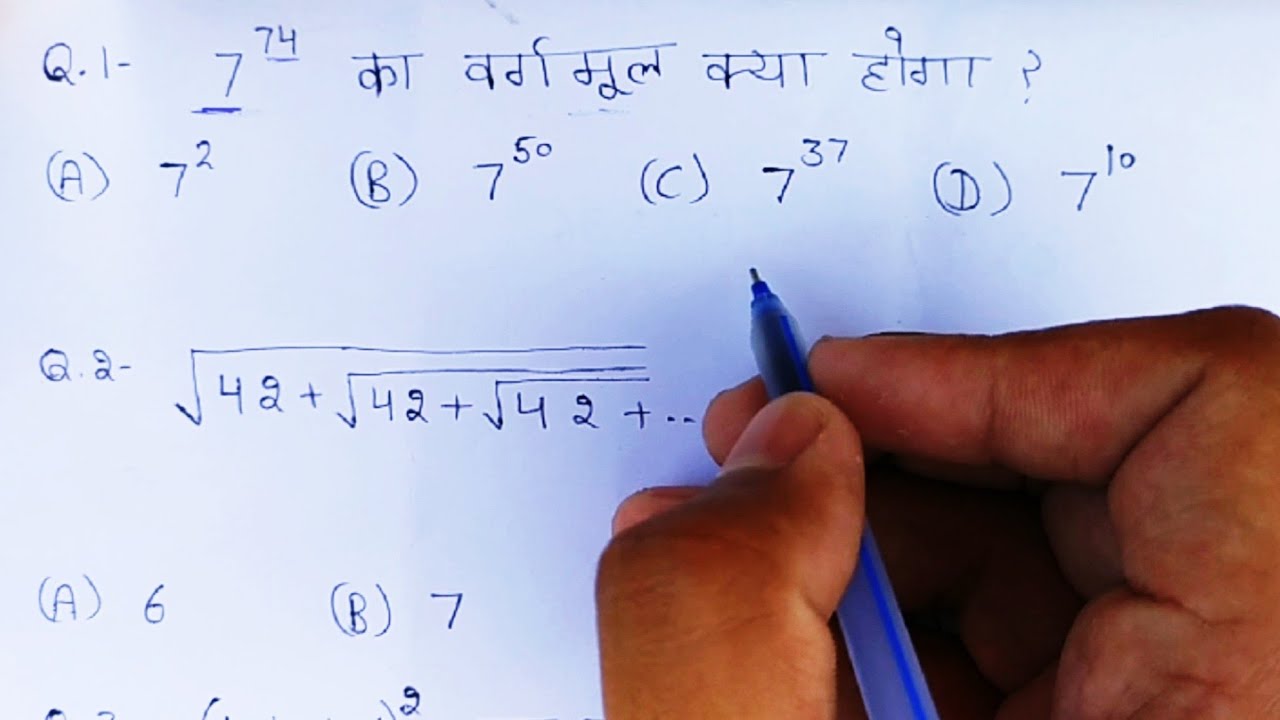 Q.1- 7^74 का वर्गमूल क्या होगा ?
(A) 7^2 (B) 7^50 (C) 7^37 (D) 7^10
Q.2- √42+√42+√42+..
(A) 6 (B) 7